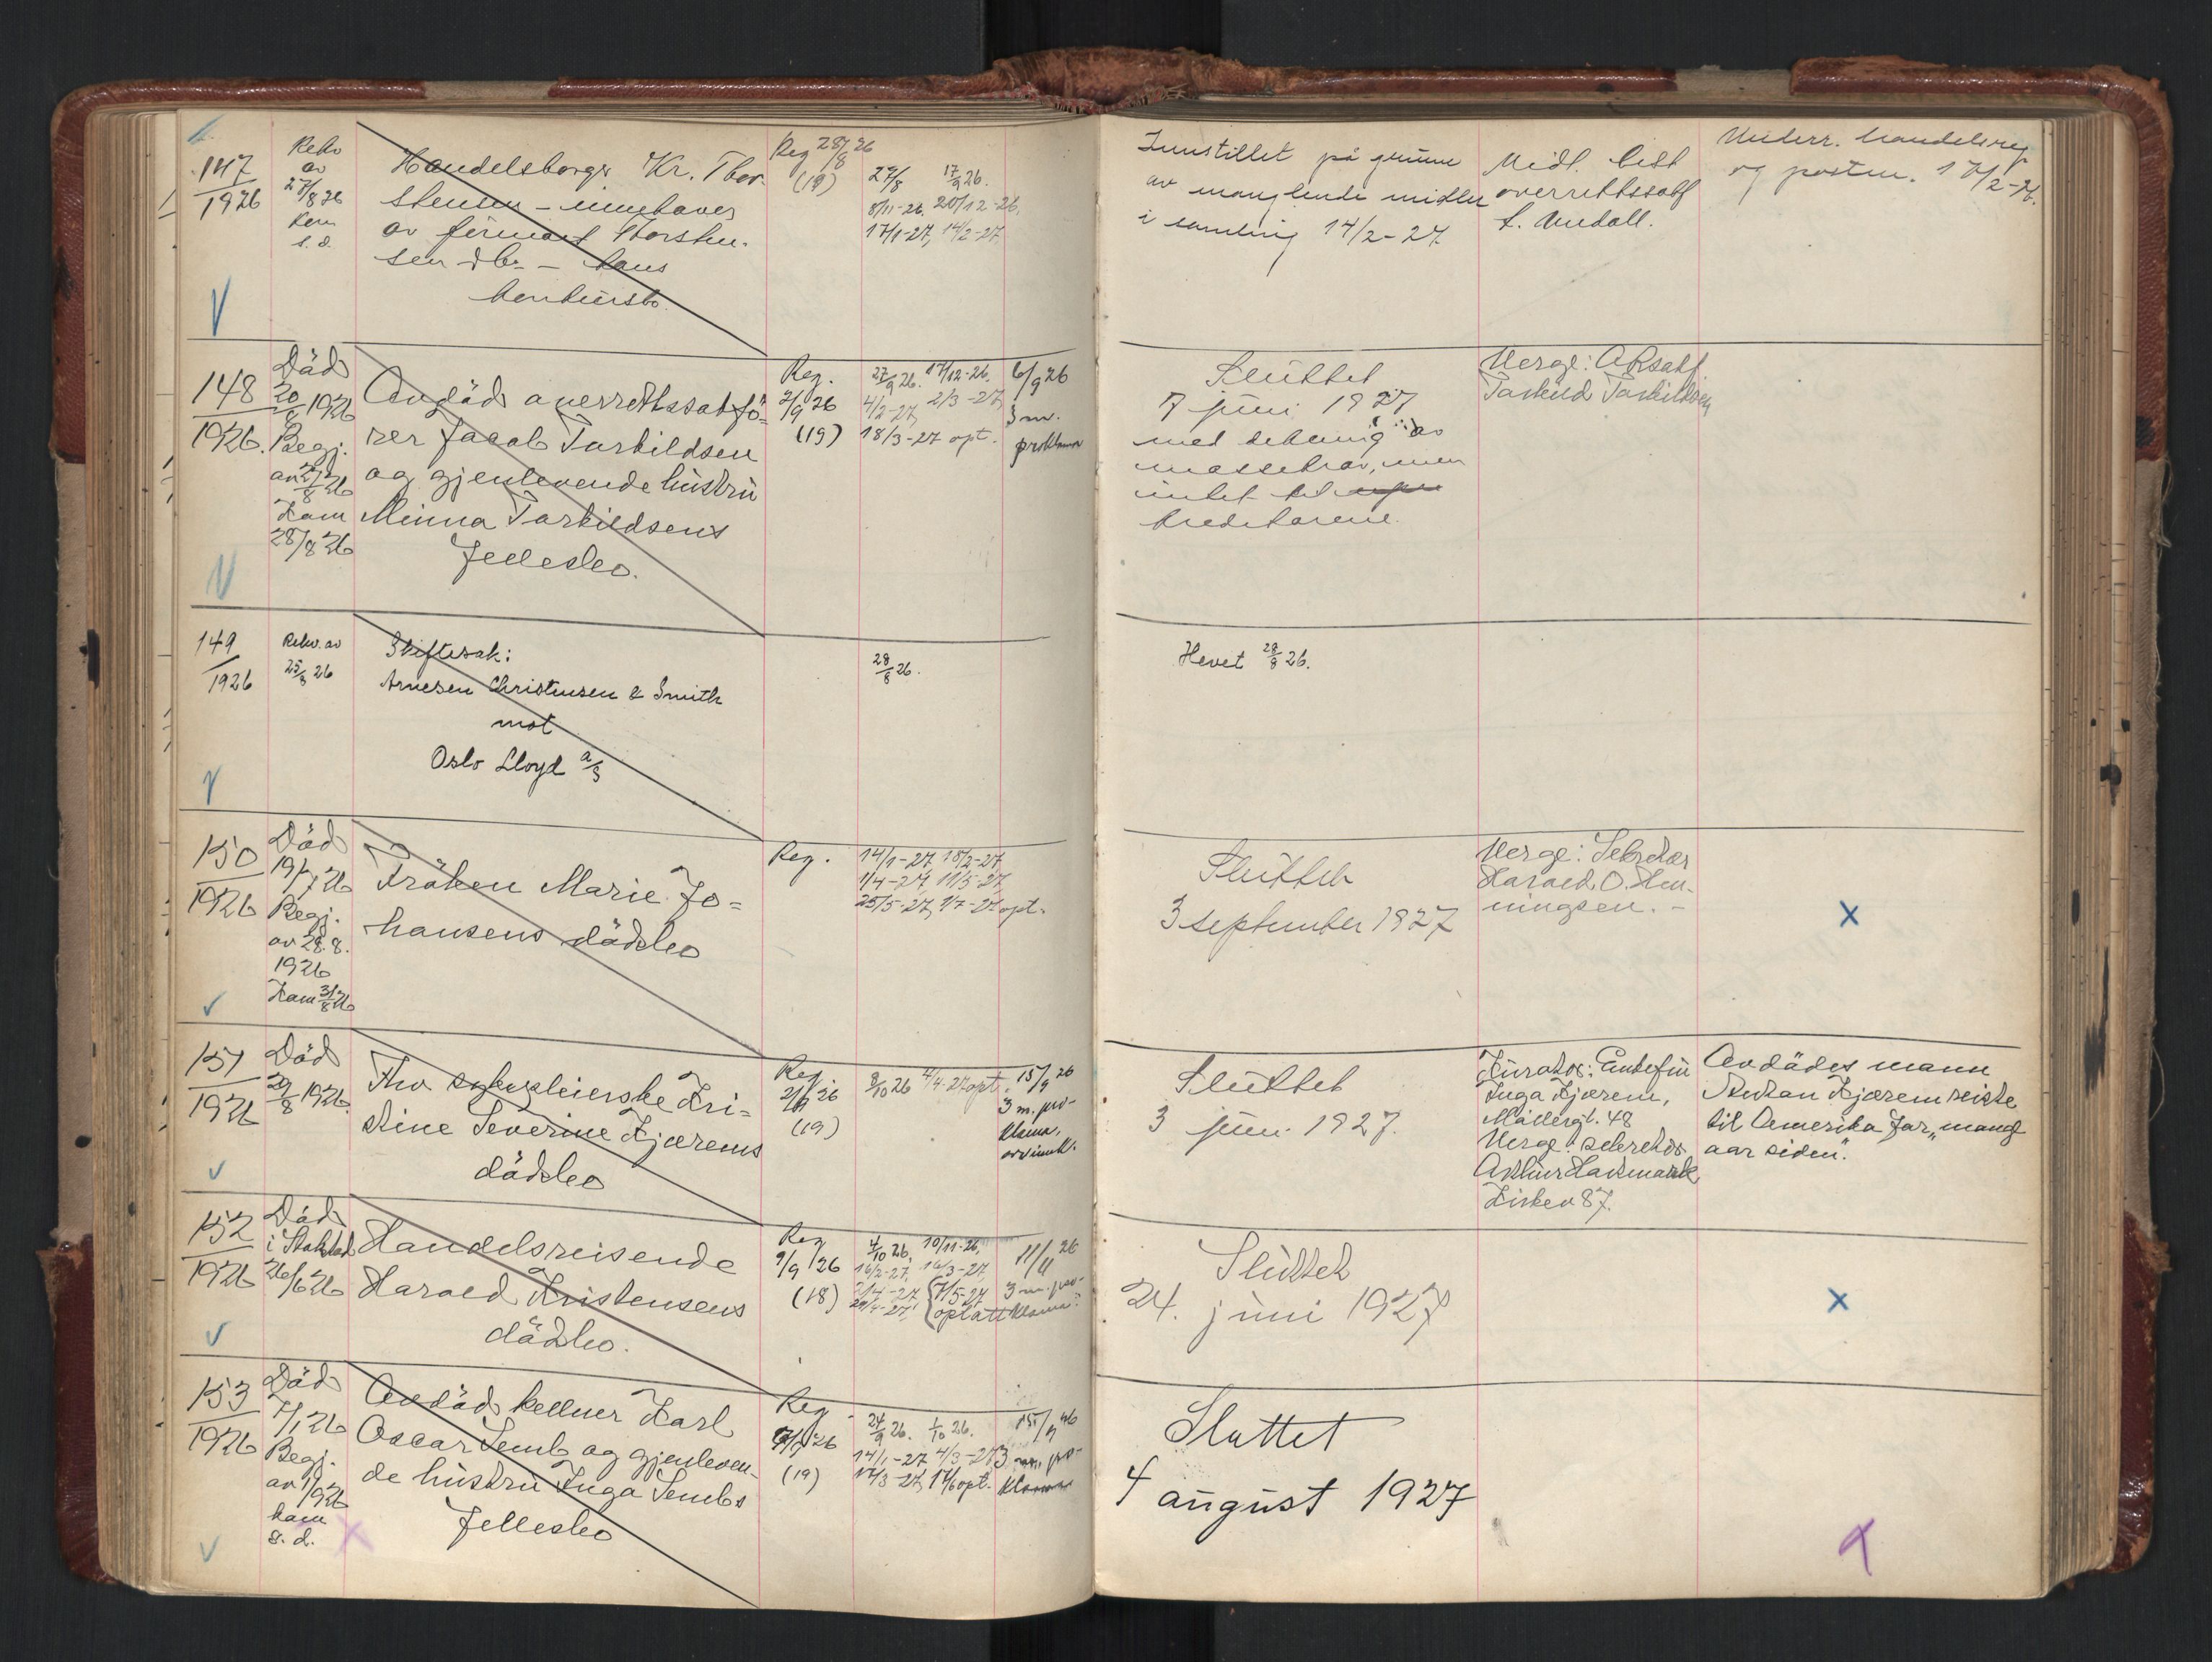 147
1926
Rekv
av
27/8 26
Kom
s. d.
Handelsborger Kr. Thor-
stensen – innehaver
av firmaet Thorsten-
sen & Co – hans
konkursbo.
Reg 28/8 26
(19)
27/8 17/9 26.
8/11-26. 20/12-26,
17/1-27, 14/2-27
Innstillet på grunn
av manglende midler
i samling 14/2-27.
Midl. best
overrettssakf
Underr. handelsreg.
og postm. 17/2-
148
1926.
Död
20/8 1926
Begj.
av 27/8 26
Kom
28/8 26
Avgåds overrettssakfö-
rer Jacob Tarkildsen
og gjenlevende hüstrü
Minna Tarkildsens
Fellesbo.
Reg.
2/9 26
(19)
27/9 26. 17/12-26.
4/2-27, 2/3-27,
18/3-27 opt.
6/9 26
3 m.
proklama
Sluttet
7 juni 1927
med dekning av
massekrav, men
intet til
kreditorene.
Verge: ORsakf.
Tarkild Tarkildsen
149
1926
Rekv. av
25/8 26
Skiftesak:
Arnesen Christensen & Smith
mot
Oslo Lloyd a/s
28/8 26.
Hevet 28/8 26.
150
1926
Död
19/7 26
Begj.
av 28.8.
1926
Kom 31/8 26
Fröken Marie Jo-
hansens dödsbo
Reg.
14/1-27, 18/2-27,
1/4-27, 11/5-27,
25/5-27, 1/7-27 opt.
Sluttet
3 september 1927
Verge: Sekretær
Harald O. Hen-
ningsen. –
x
151
1926
Död
29/8 1926.
Fhv. sykepleierske Kri-
stine Severine Kjærems
dödsbo
Reg
2/9 26
(19)
8/10 26 4/4-27 opt.
15/9 26
3 m. pro-
klama,
arvinnk.
Sluttet
3 juni 1927.
Kurator: Enkefru
Inga Kjærem,
Möllergt. 48
Verge: sekretær
Arthur Hartmark
Kirkev 87.
Avdödes mann
Anton Kjærem reiste
til Amerika for „mange
aar siden".
152
1926
Död
i
26/6 26
Handelsreisende
Harald Kristensens
dödsbo.
Reg
9/9 26
(18)
4/10 26, 10/11-26,
16/2-27, 16/3-27,
21/4-27 7/5-27
29/4-27, optatt
11/11 26
3 m. pro-
klama
Sluttet
24. juni 1927
x
153
1926
Död
7/1 26
Begj.
av 1/9 26
kom
s. d.
x
Avdöd kellner Karl
Oscar Semb og gjenleven-
de hüstrü Inga Sembs
Fellesbo
Reg
7/9 26
(19)
24/9 26. 1/10 26.
14/1-27 4/3-27
17/3-27, 17/6 opt.
15/9 26
3 m. pro-
klama
Sluttet
4 august 1927
x